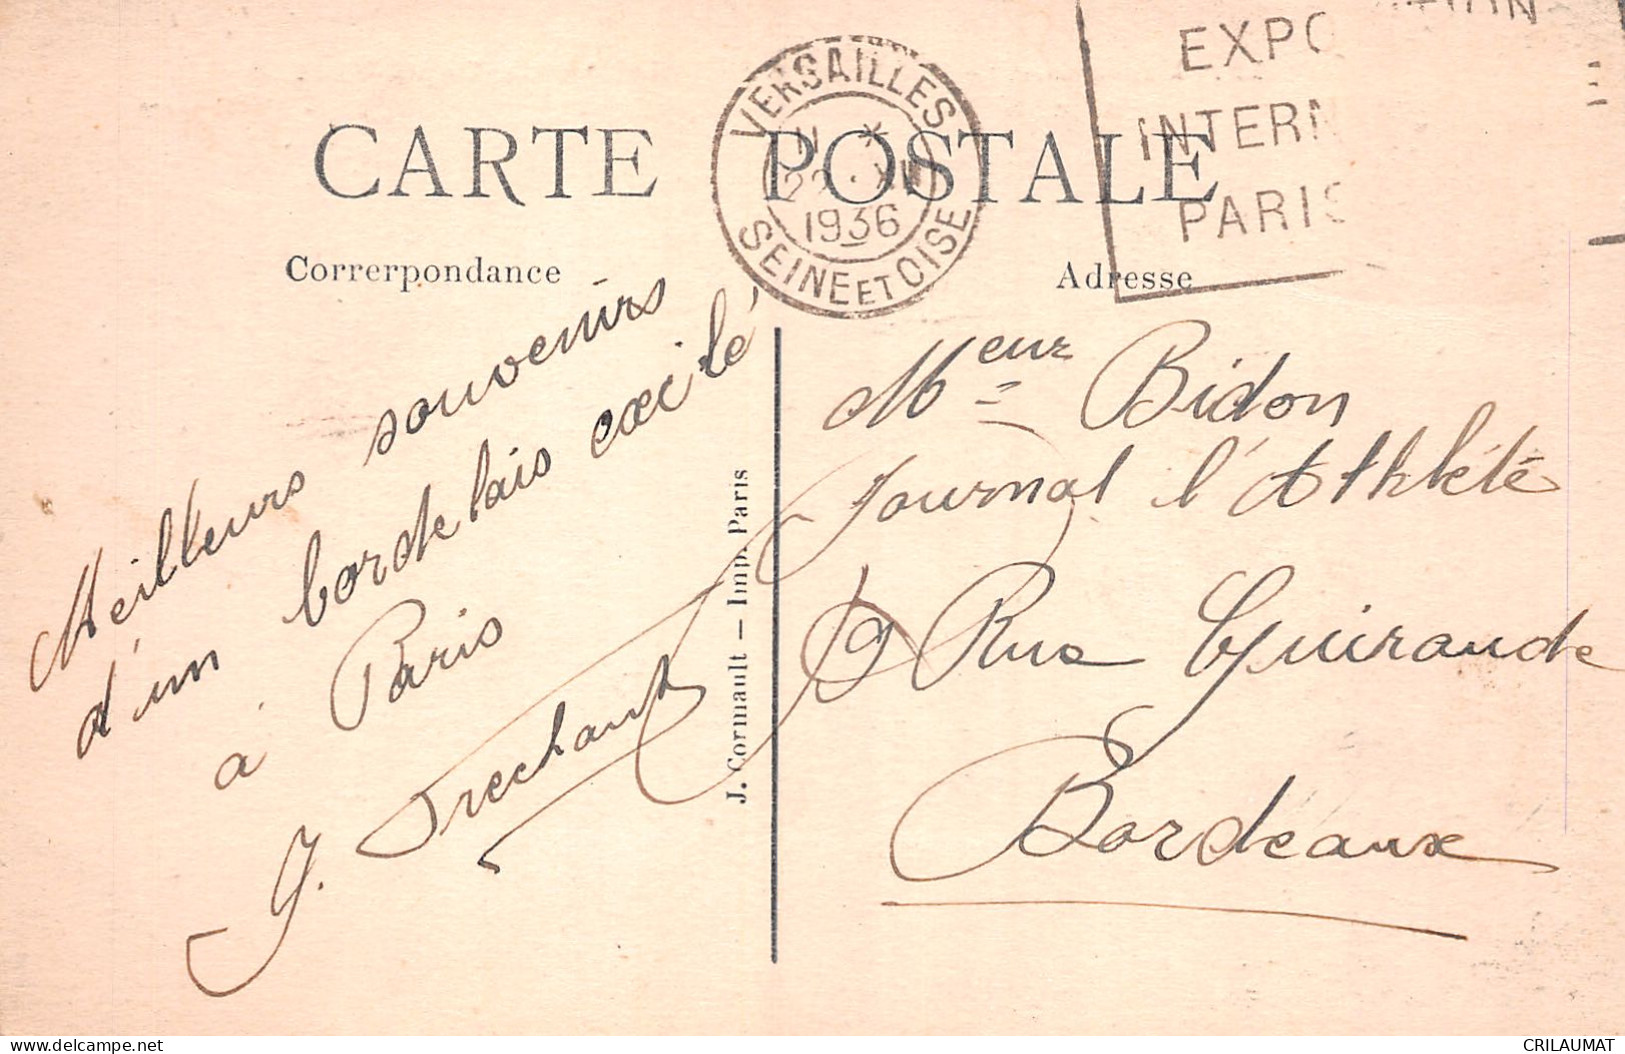 CARTE POSTALE
VERSAILLES
1936
SEINE ET OISE
EXPO
INTERN
PARIS
Correrpondance
Adresse
Meilleurs souvenirs
d'un bordelais exilé
à Paris
J. Trechant
J. Cormault — Imp. Paris
Meur Bidon
Journal l'Athlété
9 Rue Guiraude
Bordeaux
Delcampe.net
CRILAUMAT